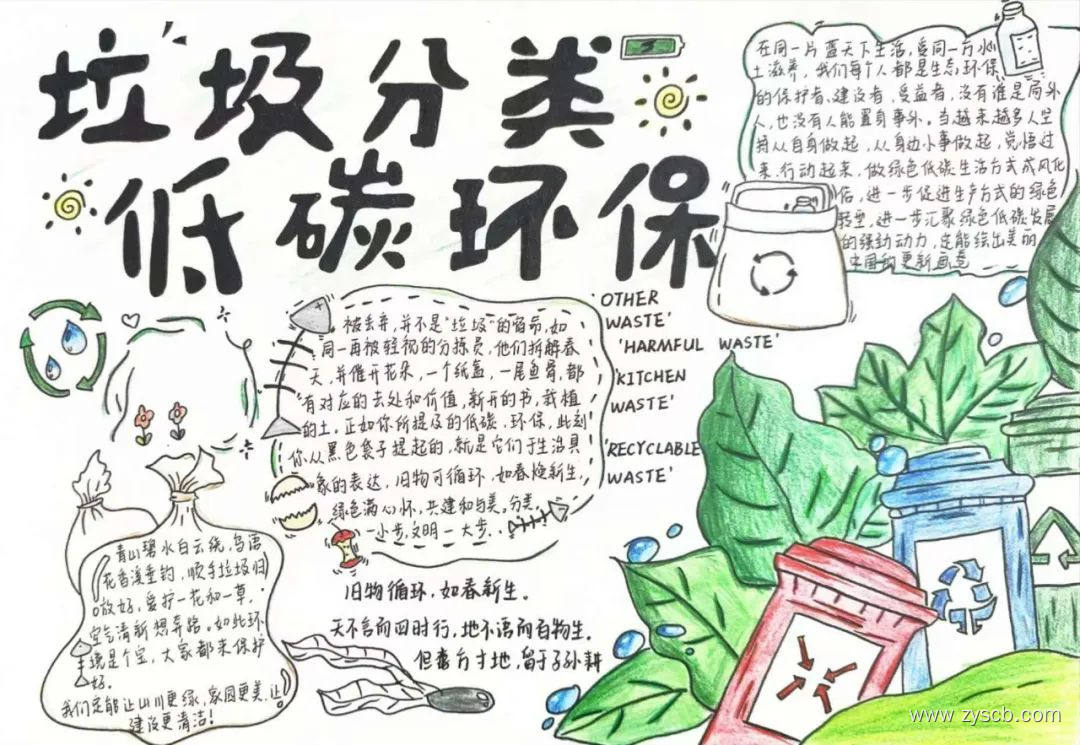 垃圾分类
低碳环保
在同一片蓝天下生活,受同一方水
土滋养,我们每个人都是生态环保
的保护者、建设者、受益者,没有谁是局外
人,也没有人能置身事外。当越来越多人坚
持从自身做起,从身边小事做起,觉悟过
来,行动起来,做绿色低碳生活方式成风化
俗,进一步促进生产方式的绿色
转型,进一步汇聚绿色低碳发展
的强劲动力,定能绘出美丽
中国的更新画卷
被丢弃,并不是“垃圾”的宿命,如
同一再被轻视的分拣员,他们拆解春
天,并催开花朵,一个纸盒,一尾鱼骨,都
有对应的去处和价值,新开的书,栽植
的土。正如你所提及的低碳、环保,此刻
你从黑色袋子提起的,就是它们于生活具
象的表达,旧物可循环,如春焕新生,
绿色满心怀,共建和与美。分类
一小步,文明一大步。
OTHER
WASTE'
'HARMFUL WASTE'
'KITCHEN
WASTE'
'RECYCLABLE
WASTE'
青山碧水白云绕,鸟语
花香溪垂钓,顺手垃圾归
放好,爱护一花和一草,
空气清新想奔跑。如此环
境是个宝,大家都来保护
好。
我们定能让山川更绿,家园更美,让
建设更清洁!
旧物循环,如春新生。
天不言而四时行,地不语而百物生。
但存方寸地,留于子孙耕
www.zyscb.com